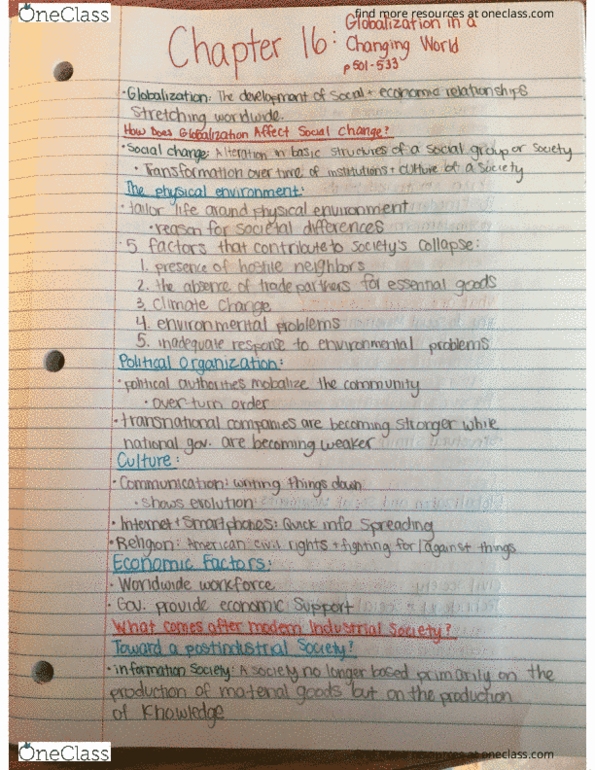 OneClass
find more resources at oneclass.com
Chapter 16: Globalization in a
Changing World
p501-533
· Globalization: The development of social + economic relationships
stretching worldwide.
How Does Globalization Affect Social Change?
· Social change: Alteration in basic structures of a social group or society
· Transformation over time of institutions + culture of a society
The physical environment:
· tailor life around physical environment
· reason for societal differences
· 5 factors that contribute to society's collapse:
1. presence of hostile neighbors
2. the absence of trade partners for essential goods
3. climate change
4. environmental problems
5. inadequate response to environmental problems
Political Organization:
· political authorities mobalize the community
· over-turn order
· transnational companies are becoming stronger while
national gov. are becoming weaker
Culture:
· Communication: writing things down
· shows evolution
· Internet + Smartphones: Quick info spreading
· Religion: American civil rights + fighting for/against things
Economic Factors:
· Worldwide workforce
· Gov. provide economic support
What comes after modern Industrial Society?
Toward a postindustrial Society?
· information Society: A society no longer based primarily on the
production of material goods but on the production
of knowledge
OneClass
find more resources at oneclass.com